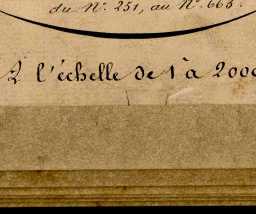 du N.º 251, au N.º 663.
À l'échelle de 1 à 2000